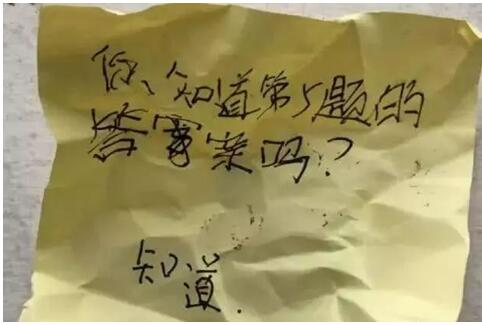 你知道第5题的
答案吗?
知
道.